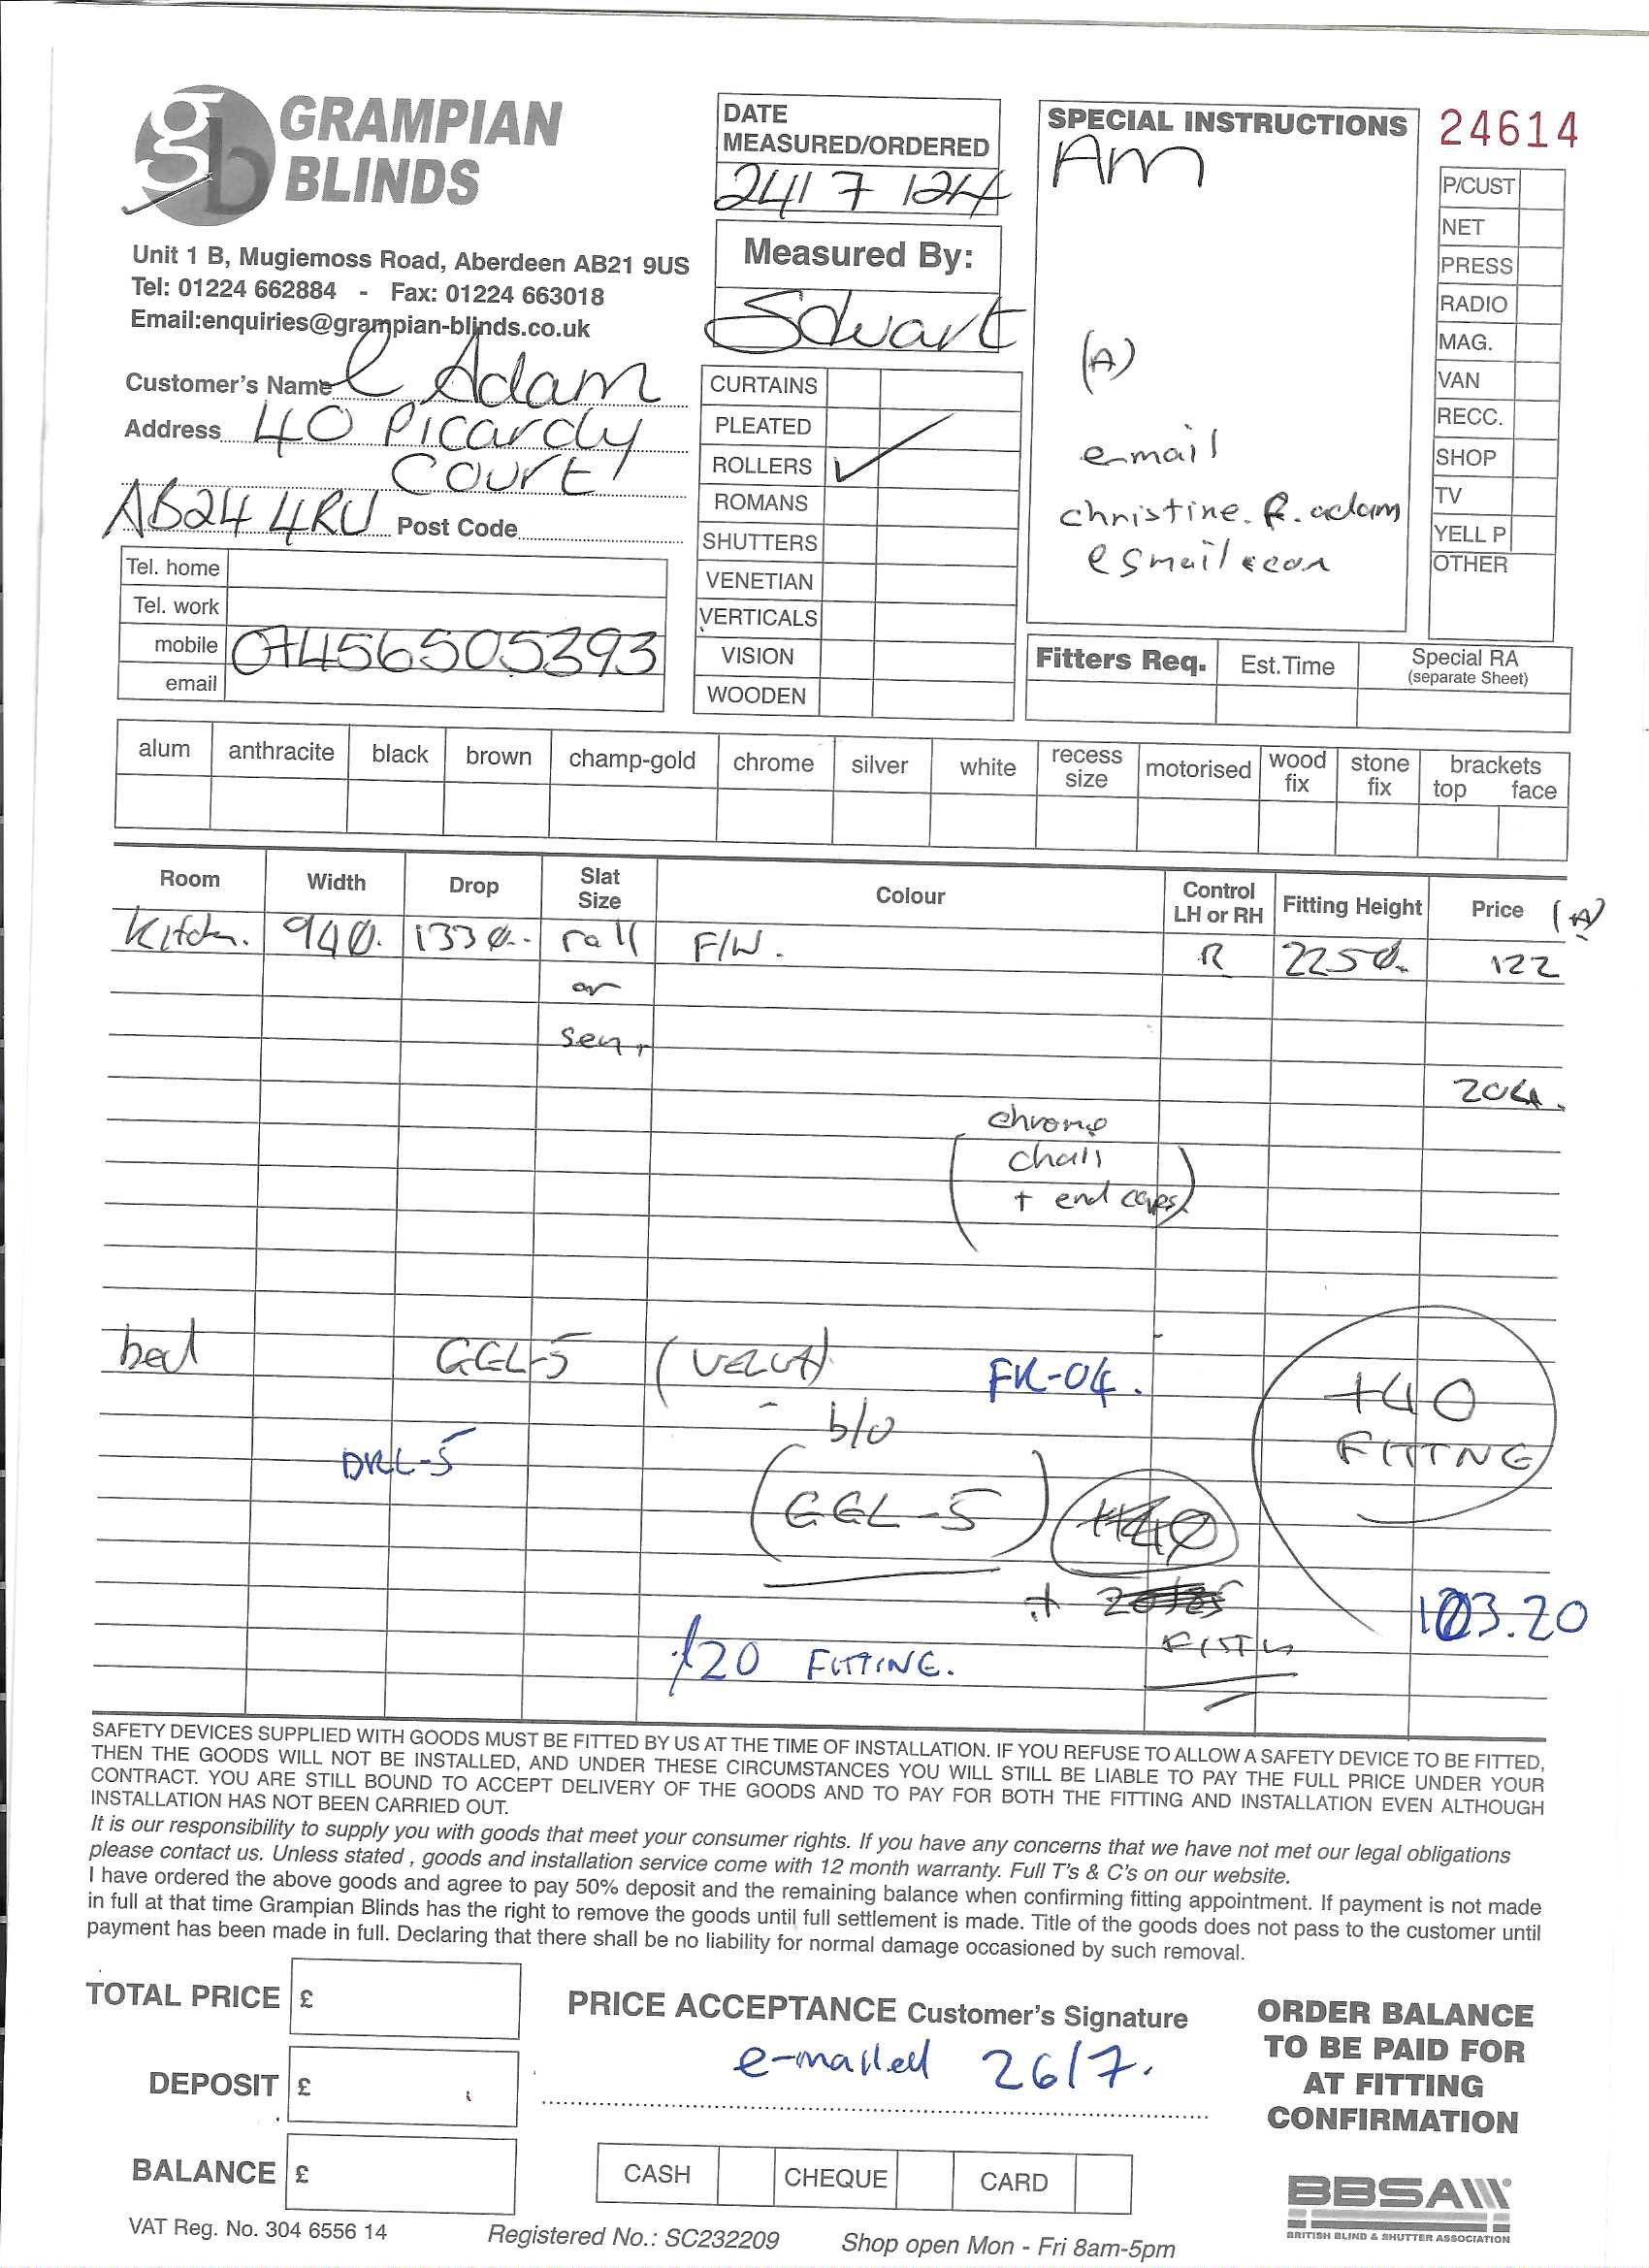 GRAMPIAN
BLINDS
gb
Unit 1 B, Mugiemoss Road, Aberdeen AB21 9US
Tel: 01224 662884 - Fax: 01224 663018
Email:enquiries@grampian-blinds.co.uk
Customer's Name C Adam
Address 40 Picardy
Court
AB24 4RU Post Code
Tel. home
Tel. work
mobile 07456505393
email
DATE
MEASURED/ORDERED
24/7/24
Measured By:
CURTAINS
PLEATED
ROLLERS ✓
ROMANS
SHUTTERS
VENETIAN
VERTICALS
VISION
WOODEN
SPECIAL INSTRUCTIONS
AM
(A)
e-mail
christine.R.adam
@gmail.com
24614
P/CUST
NET
PRESS
RADIO
MAG.
VAN
RECC.
SHOP
TV
YELL P
OTHER
Fitters Req. Est.Time Special RA
(separate Sheet)
alum anthracite black brown champ-gold chrome silver white recess size motorised wood fix stone fix brackets top face
Room Width Drop Slat Size Colour Control LH or RH Fitting Height Price (A)
Kitchn. 940. 1330.. roll F/W. R 2250. 122
or
sen.
204.
chrome
(chain
+ end caps)
bed GGL-5 (VELUX) FK-04. +40
b/o FITTNG
DKL-5
(GGL-5)
+
103.20
120 FITTING.
SAFETY DEVICES SUPPLIED WITH GOODS MUST BE FITTED BY US AT THE TIME OF INSTALLATION. IF YOU REFUSE TO ALLOW A SAFETY DEVICE TO BE FITTED,
THEN THE GOODS WILL NOT BE INSTALLED, AND UNDER THESE CIRCUMSTANCES YOU WILL STILL BE LIABLE TO PAY THE FULL PRICE UNDER YOUR
CONTRACT. YOU ARE STILL BOUND TO ACCEPT DELIVERY OF THE GOODS AND TO PAY FOR BOTH THE FITTING AND INSTALLATION EVEN ALTHOUGH
INSTALLATION HAS NOT BEEN CARRIED OUT.
It is our responsibility to supply you with goods that meet your consumer rights. If you have any concerns that we have not met our legal obligations
please contact us. Unless stated , goods and installation service come with 12 month warranty. Full T's & C's on our website.
I have ordered the above goods and agree to pay 50% deposit and the remaining balance when confirming fitting appointment. If payment is not made
in full at that time Grampian Blinds has the right to remove the goods until full settlement is made. Title of the goods does not pass to the customer until
payment has been made in full. Declaring that there shall be no liability for normal damage occasioned by such removal.
TOTAL PRICE £
DEPOSIT £
BALANCE £
PRICE ACCEPTANCE Customer's Signature
e-mailed 26/7.
CASH CHEQUE CARD
ORDER BALANCE
TO BE PAID FOR
AT FITTING
CONFIRMATION
BBSA
BRITISH BLIND & SHUTTER ASSOCIATION
VAT Reg. No. 304 6556 14 Registered No.: SC232209 Shop open Mon - Fri 8am-5pm